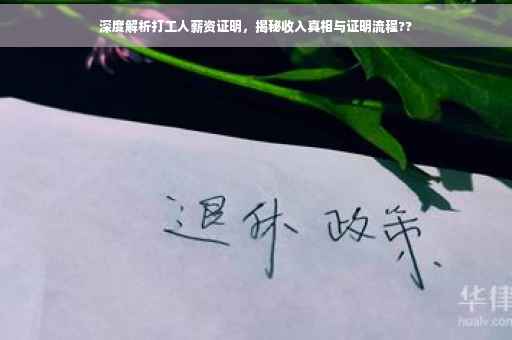 深度解析打工人薪资证明，揭秘收入真相与证明流程??
退休 政策
华律
hualv.com